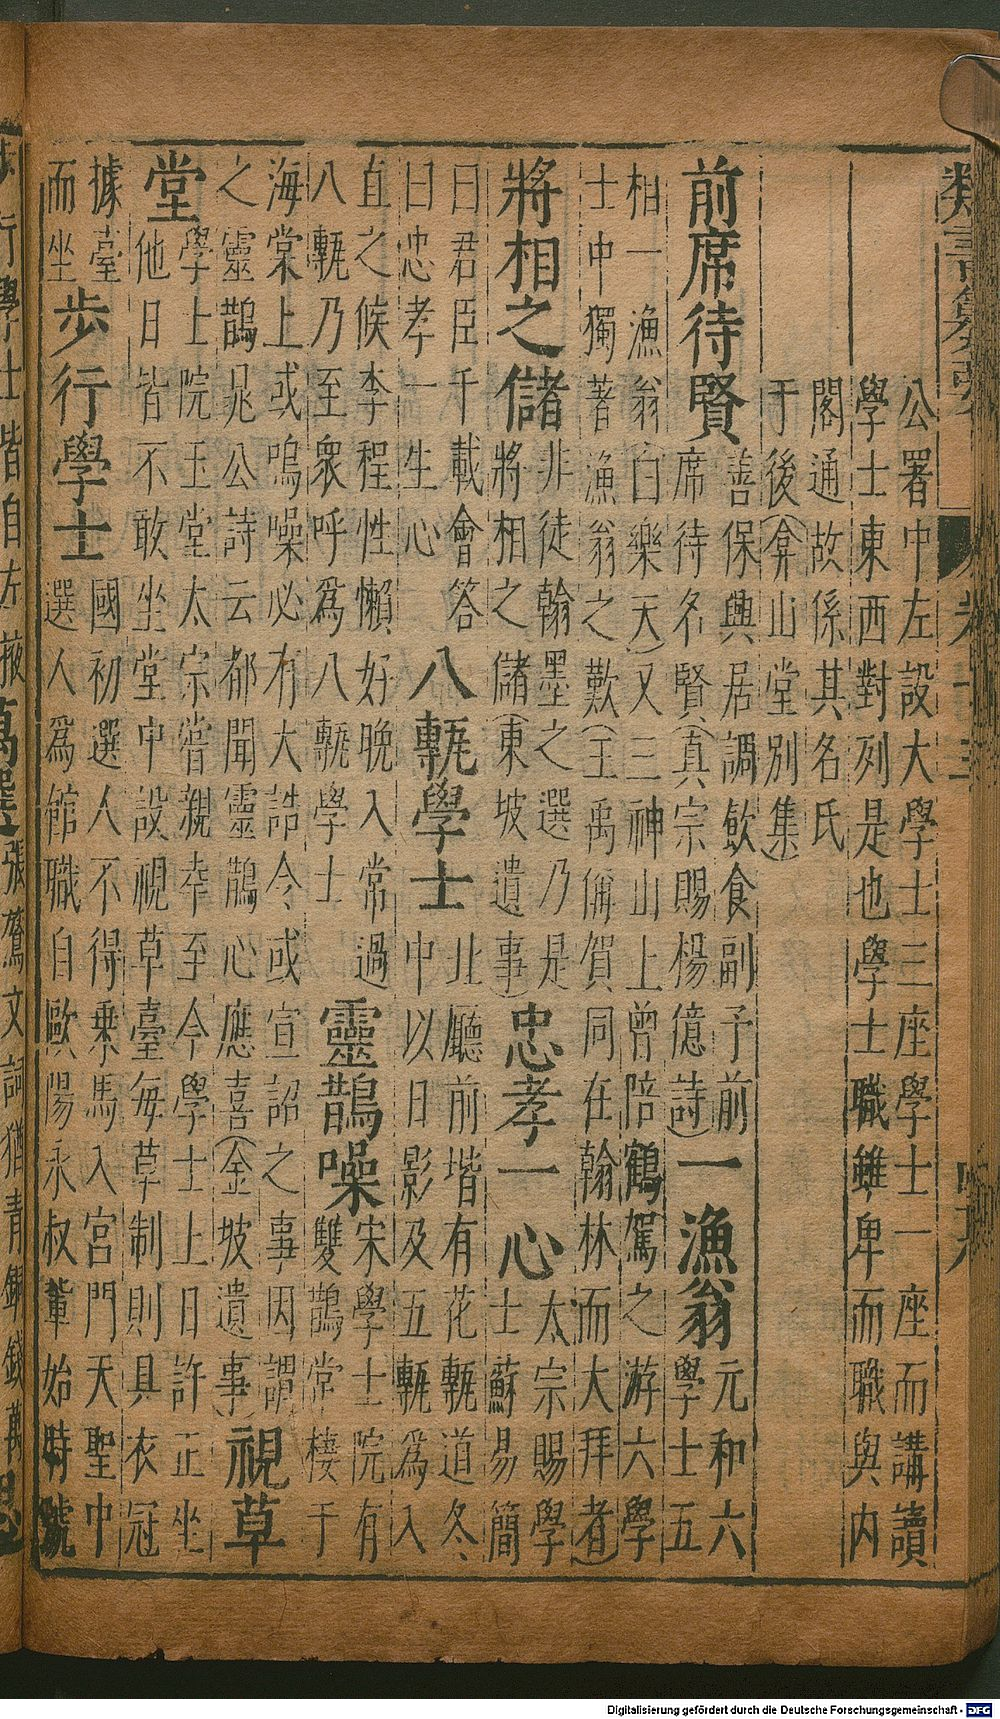 公署中左設大學士三座學士一座而講讀
學士東西對列是也學士職雖卑而職與內
閣通故係其名氏
于後(弇山堂別集)
前席待賢 善保興居調飮食副予前
席待名賢(真宗賜楊億詩) 一漁翁 元和六
學士五
相一漁翁(白樂天)又三神山上曾陪鶴駕之游六學
士中獨著漁翁之歎(王禹偁賀同在翰林而大拜者)
將相之儲 非徒翰墨之選乃是
將相之儲(東坡遺事) 忠孝一心 太宗賜學
士蘇易簡
曰君臣千載會答
曰忠孝一生心 八甎學士 北廳前堦有花甎道冬
中以日影及五甎為入
直之候李程性懶好晚入常過
八甎乃至眾呼爲八甎學士 靈鵲噪 宋學士院有
雙鵲常棲于
海棠上或鳴噪必有大誥令或宣詔之事因謂
之靈鵲晁公詩云都聞靈鵲心應喜(金坡遺事) 視草
堂 學士院玉堂太宗嘗親幸至今學士上日許正坐
他日皆不敢坐堂中設視草臺每草制則具衣冠
據臺
而坐 步行學士 國初選人不得乗馬入宮門天聖中
選人爲館職自歐陽永叔輩始時號
步行學士皆自左掖 萬選 張鷟文詞猶青錢萬
類書纂要
卷十三
Digitalisierung gefördert durch die Deutsche Forschungsgemeinschaft - DFG